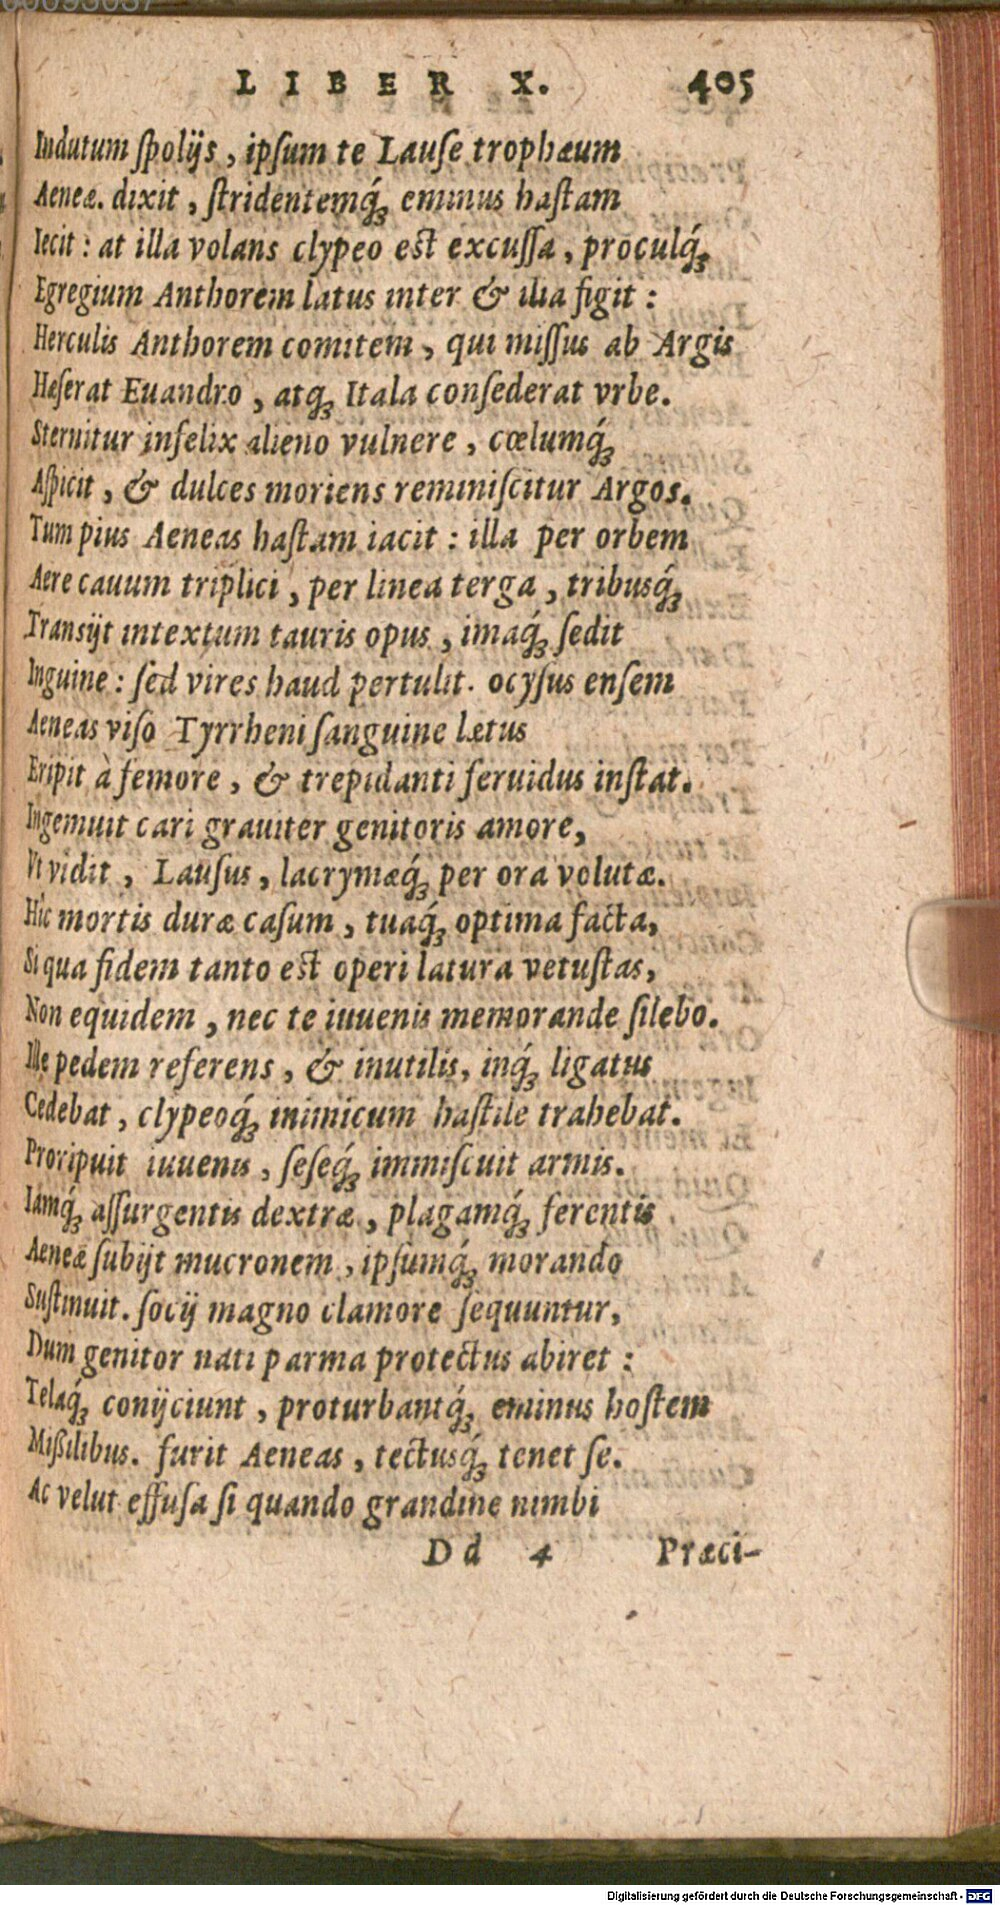 LIBER X. 405
Indutum spolijs, ipsum te Lause trophæum
Aeneæ. dixit, stridentemq́; eminus hastam
Iecit: at illa volans clypeo est excussa, proculq́;
Egregium Anthorem latus inter & ilia figit:
Herculis Anthorem comitem, qui missus ab Argis
Hæserat Euandro, atq; Itala consederat vrbe.
Sternitur infelix alieno vulnere, cœlumq́;
Aspicit, & dulces moriens reminiscitur Argos.
Tum pius Aeneas hastam iacit: illa per orbem
Aere cauum triplici, per linea terga, tribusq́;
Transijt intextum tauris opus, imaq́; sedit
Inguine: sed vires haud pertulit. ocysus ensem
Aeneas viso Tyrrheni sanguine lætus
Eripit à femore, & trepidanti feruidus instat.
Ingemuit cari grauiter genitoris amore,
Vt vidit, Lausus, lacrymæq́; per ora volutæ.
Hic mortis duræ casum, tuaq́; optima facta,
Si qua fidem tanto est operi latura vetustas,
Non equidem, nec te iuuenis memorande silebo.
Ille pedem referens, & inutilis, inq́; ligatus
Cedebat, clypeoq́; inimicum hastile trahebat.
Proripuit iuuenis, seseq́; immiscuit armis.
Iamq́; assurgentis dextræ, plagamq́; ferentis
Aeneæ subijt mucronem, ipsumq́; morando
Sustinuit. socij magno clamore sequuntur,
Dum genitor nati parma protectus abiret:
Telaq́; conijciunt, proturbantq́; eminus hostem
Mißilibus. furit Aeneas, tectusq́; tenet se.
Ac velut effusa si quando grandine nimbi
Dd 4 Præci-
Digitalisierung gefördert durch die Deutsche Forschungsgemeinschaft - DFG